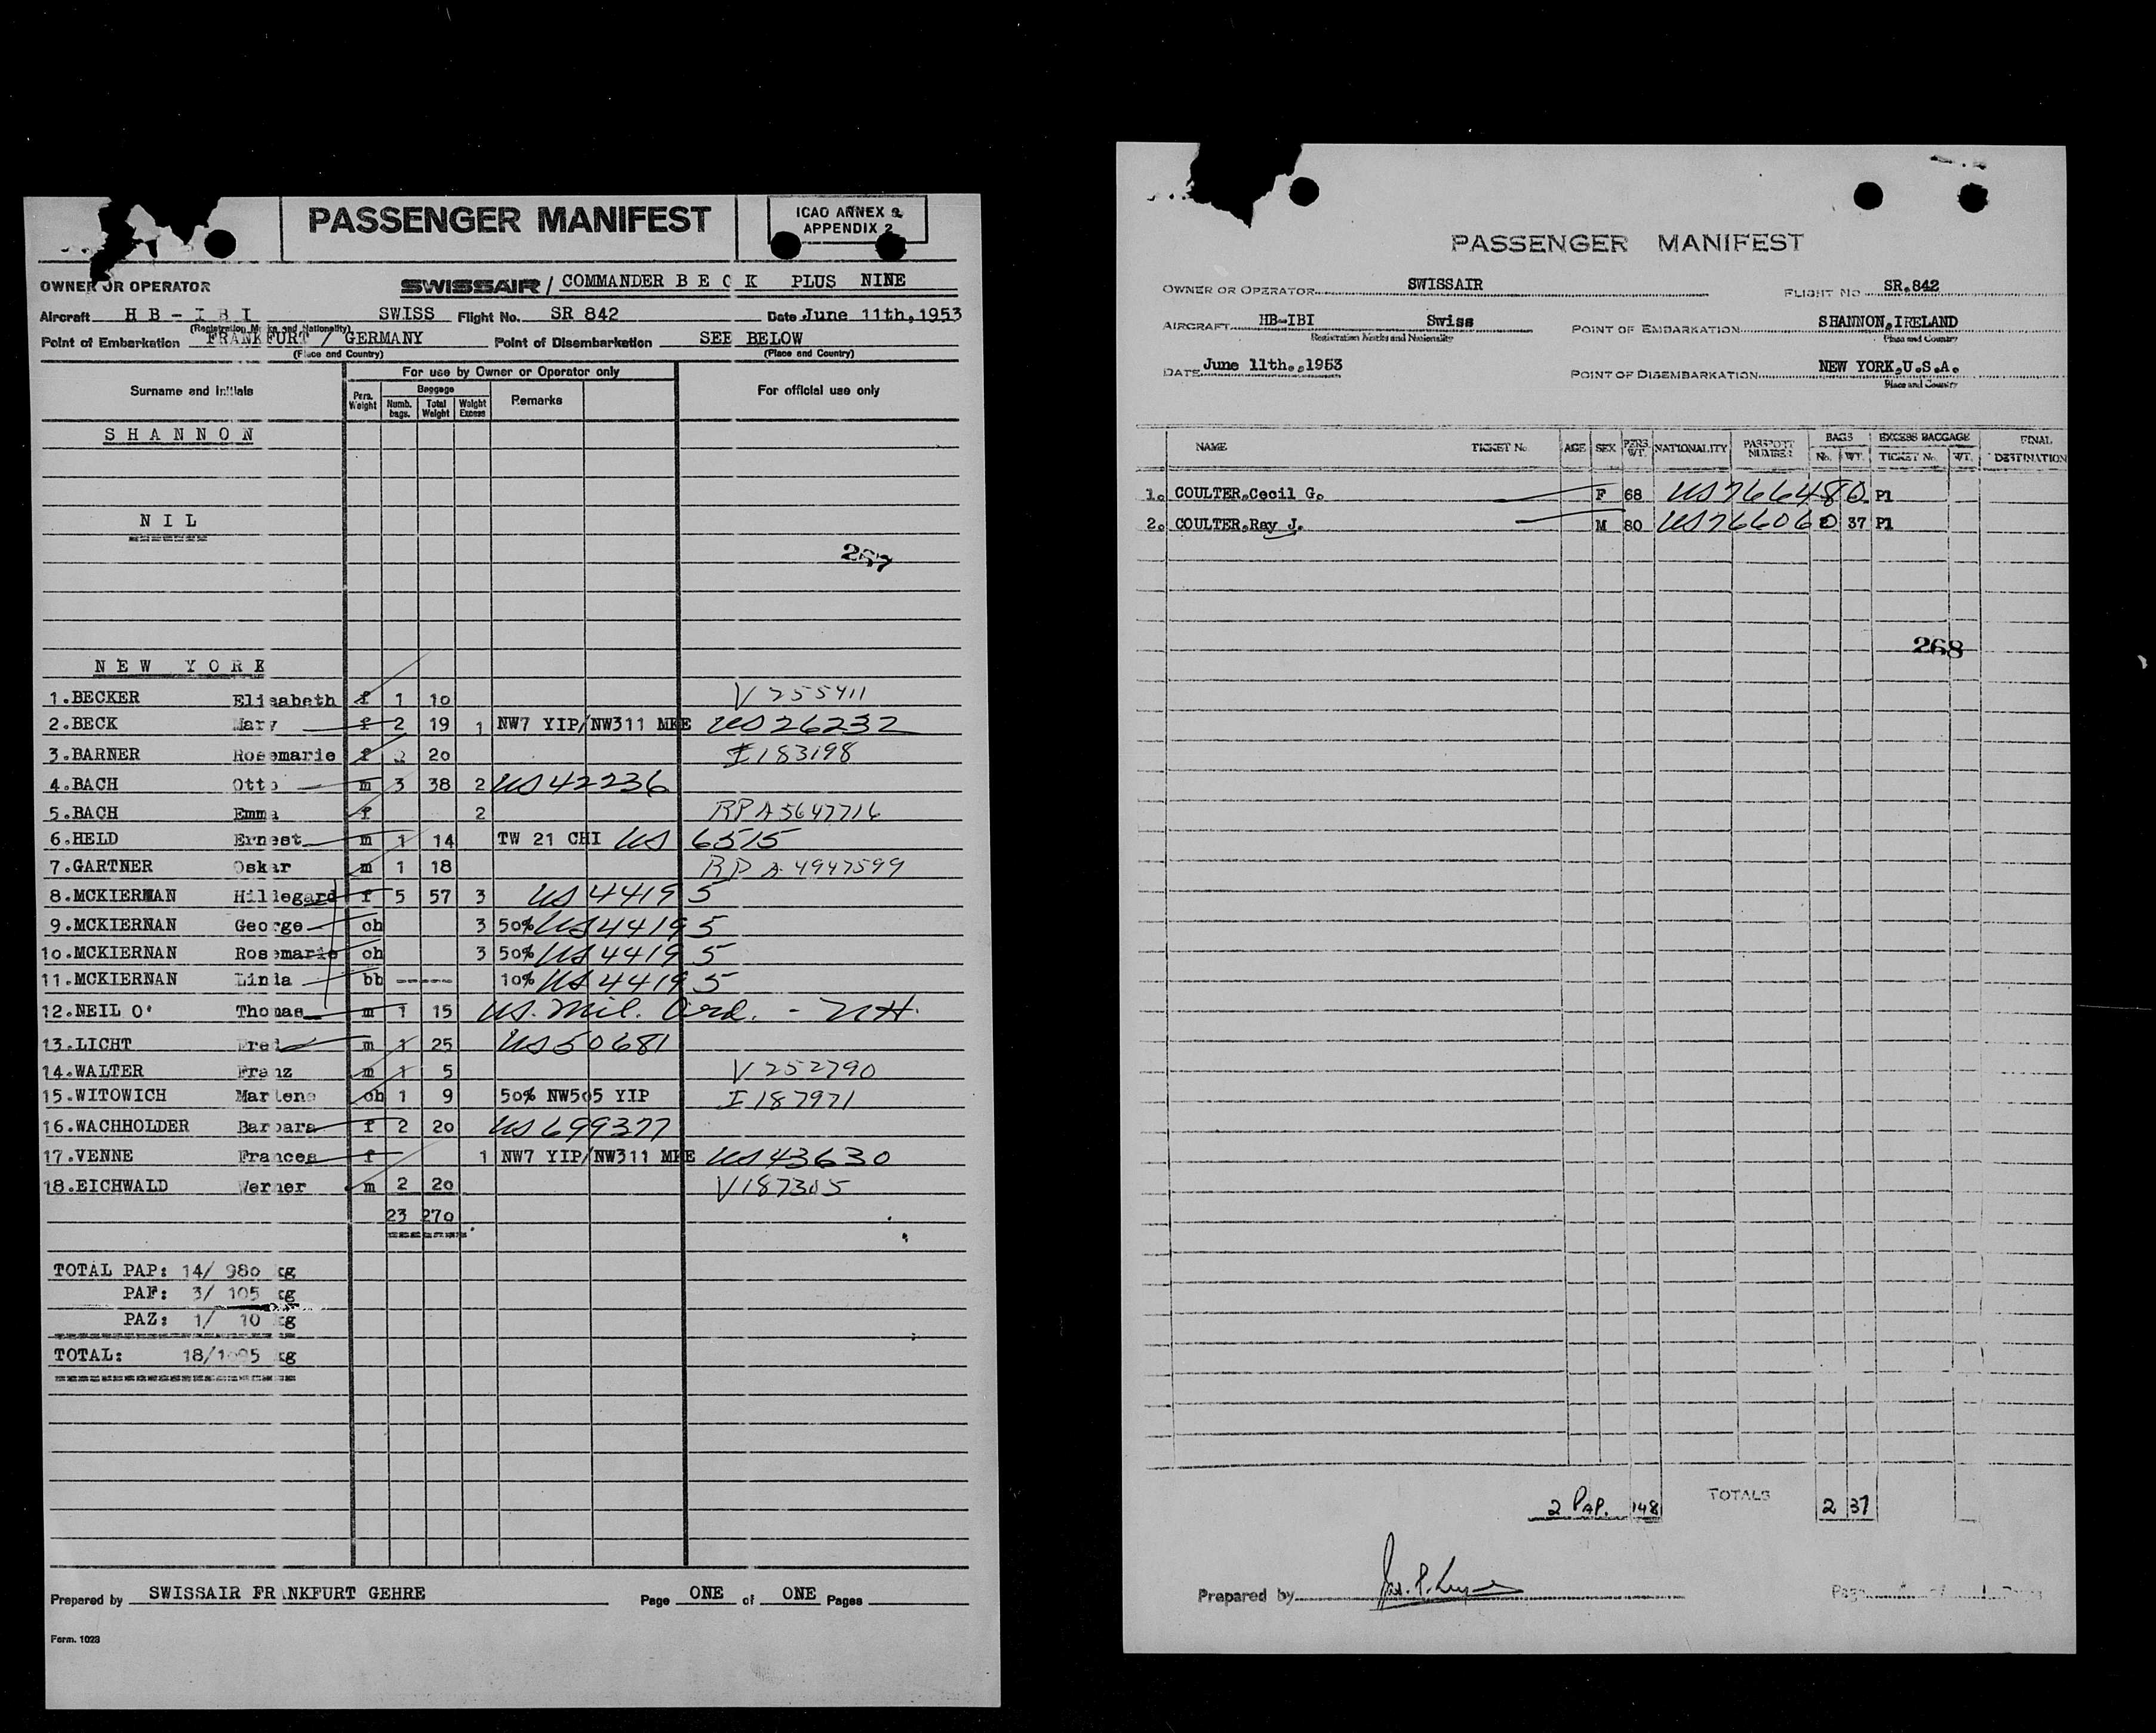 PASSENGER MANIFEST
ICAO ANNEX 9
APPENDIX 2
OWNER OR OPERATOR SWISSAIR / COMMANDER B E C K PLUS NINE
Aircraft H B - I B I SWISS Flight No. SR 842 Date June 11th, 1953
(Registration Marks and Nationality)
Point of Embarkation FRANKFURT / GERMANY Point of Disembarkation SEE BELOW
(Place and Country) (Place and Country)
For use by Owner or Operator only
Surname and Initials Pers. Weight Baggage Numb. bags. Total Weight Weight Excess Remarks For official use only
S H A N N O N
N I L
267
N E W Y O R K
1.BECKER Elisabeth f 1 10 V 255411
2.BECK Mary f 2 19 1 NW7 YIP/NW311 MKE US 26232
3.BARNER Rosemarie f 2 20 I 183198
4.BACH Otto m 3 38 2 US 42236
5.BACH Emma f 2 RP A5647716
6.HELD Ernest m 1 14 TW 21 CHI US 6515
7.GARTNER Oskar m 1 18 RP A 4947599
8.MCKIERNAN Hildegard f 5 57 3 US 44195
9.MCKIERNAN George ch 3 50% US 44195
10.MCKIERNAN Rosemarie ch 3 50% US 44195
11.MCKIERNAN Linda bb ------ 10% US 44195
12.NEIL O' Thomas m 1 15 US. Mil. Ord. -
13.LICHT Fred m 1 25 US 50681
14.WALTER Franz m 1 5 V 252790
15.WITOWICH Marlene ch 1 9 50% NW505 YIP I 187971
16.WACHHOLDER Barbara f 2 20 US 699377
17.VENNE Frances f 1 NW7 YIP/NW311 MKE US 43630
18.EICHWALD Werner m 2 20 V 187305
23 270
TOTAL PAP: 14/ 980 kg
PAF: 3/ 105 kg
PAZ: 1/ 10 kg
TOTAL: 18/1095 kg
Prepared by SWISSAIR FRANKFURT GEHRE Page ONE of ONE Pages
Form. 1023
PASSENGER MANIFEST
OWNER OR OPERATOR SWISSAIR FLIGHT NO SR.842
AIRCRAFT HB-IBI Swiss POINT OF EMBARKATION SHANNON,IRELAND
Registration Marks and Nationality Place and Country
DATE June 11th.,1953 POINT OF DISEMBARKATION NEW YORK,U.S.A.
Place and Country
NAME TICKET No. AGE SEX PERS. WT. NATIONALITY PASSPORT NUMBER BAGS No. WT. EXCESS BAGGAGE TICKET No. WT. FINAL DESTINATION
1. COULTER,Cecil G. F 68 US 766480 P1
2. COULTER,Ray J. M 80 US 76606 37 P1
268
2 PAP. 148 TOTALS 2 37
Prepared by